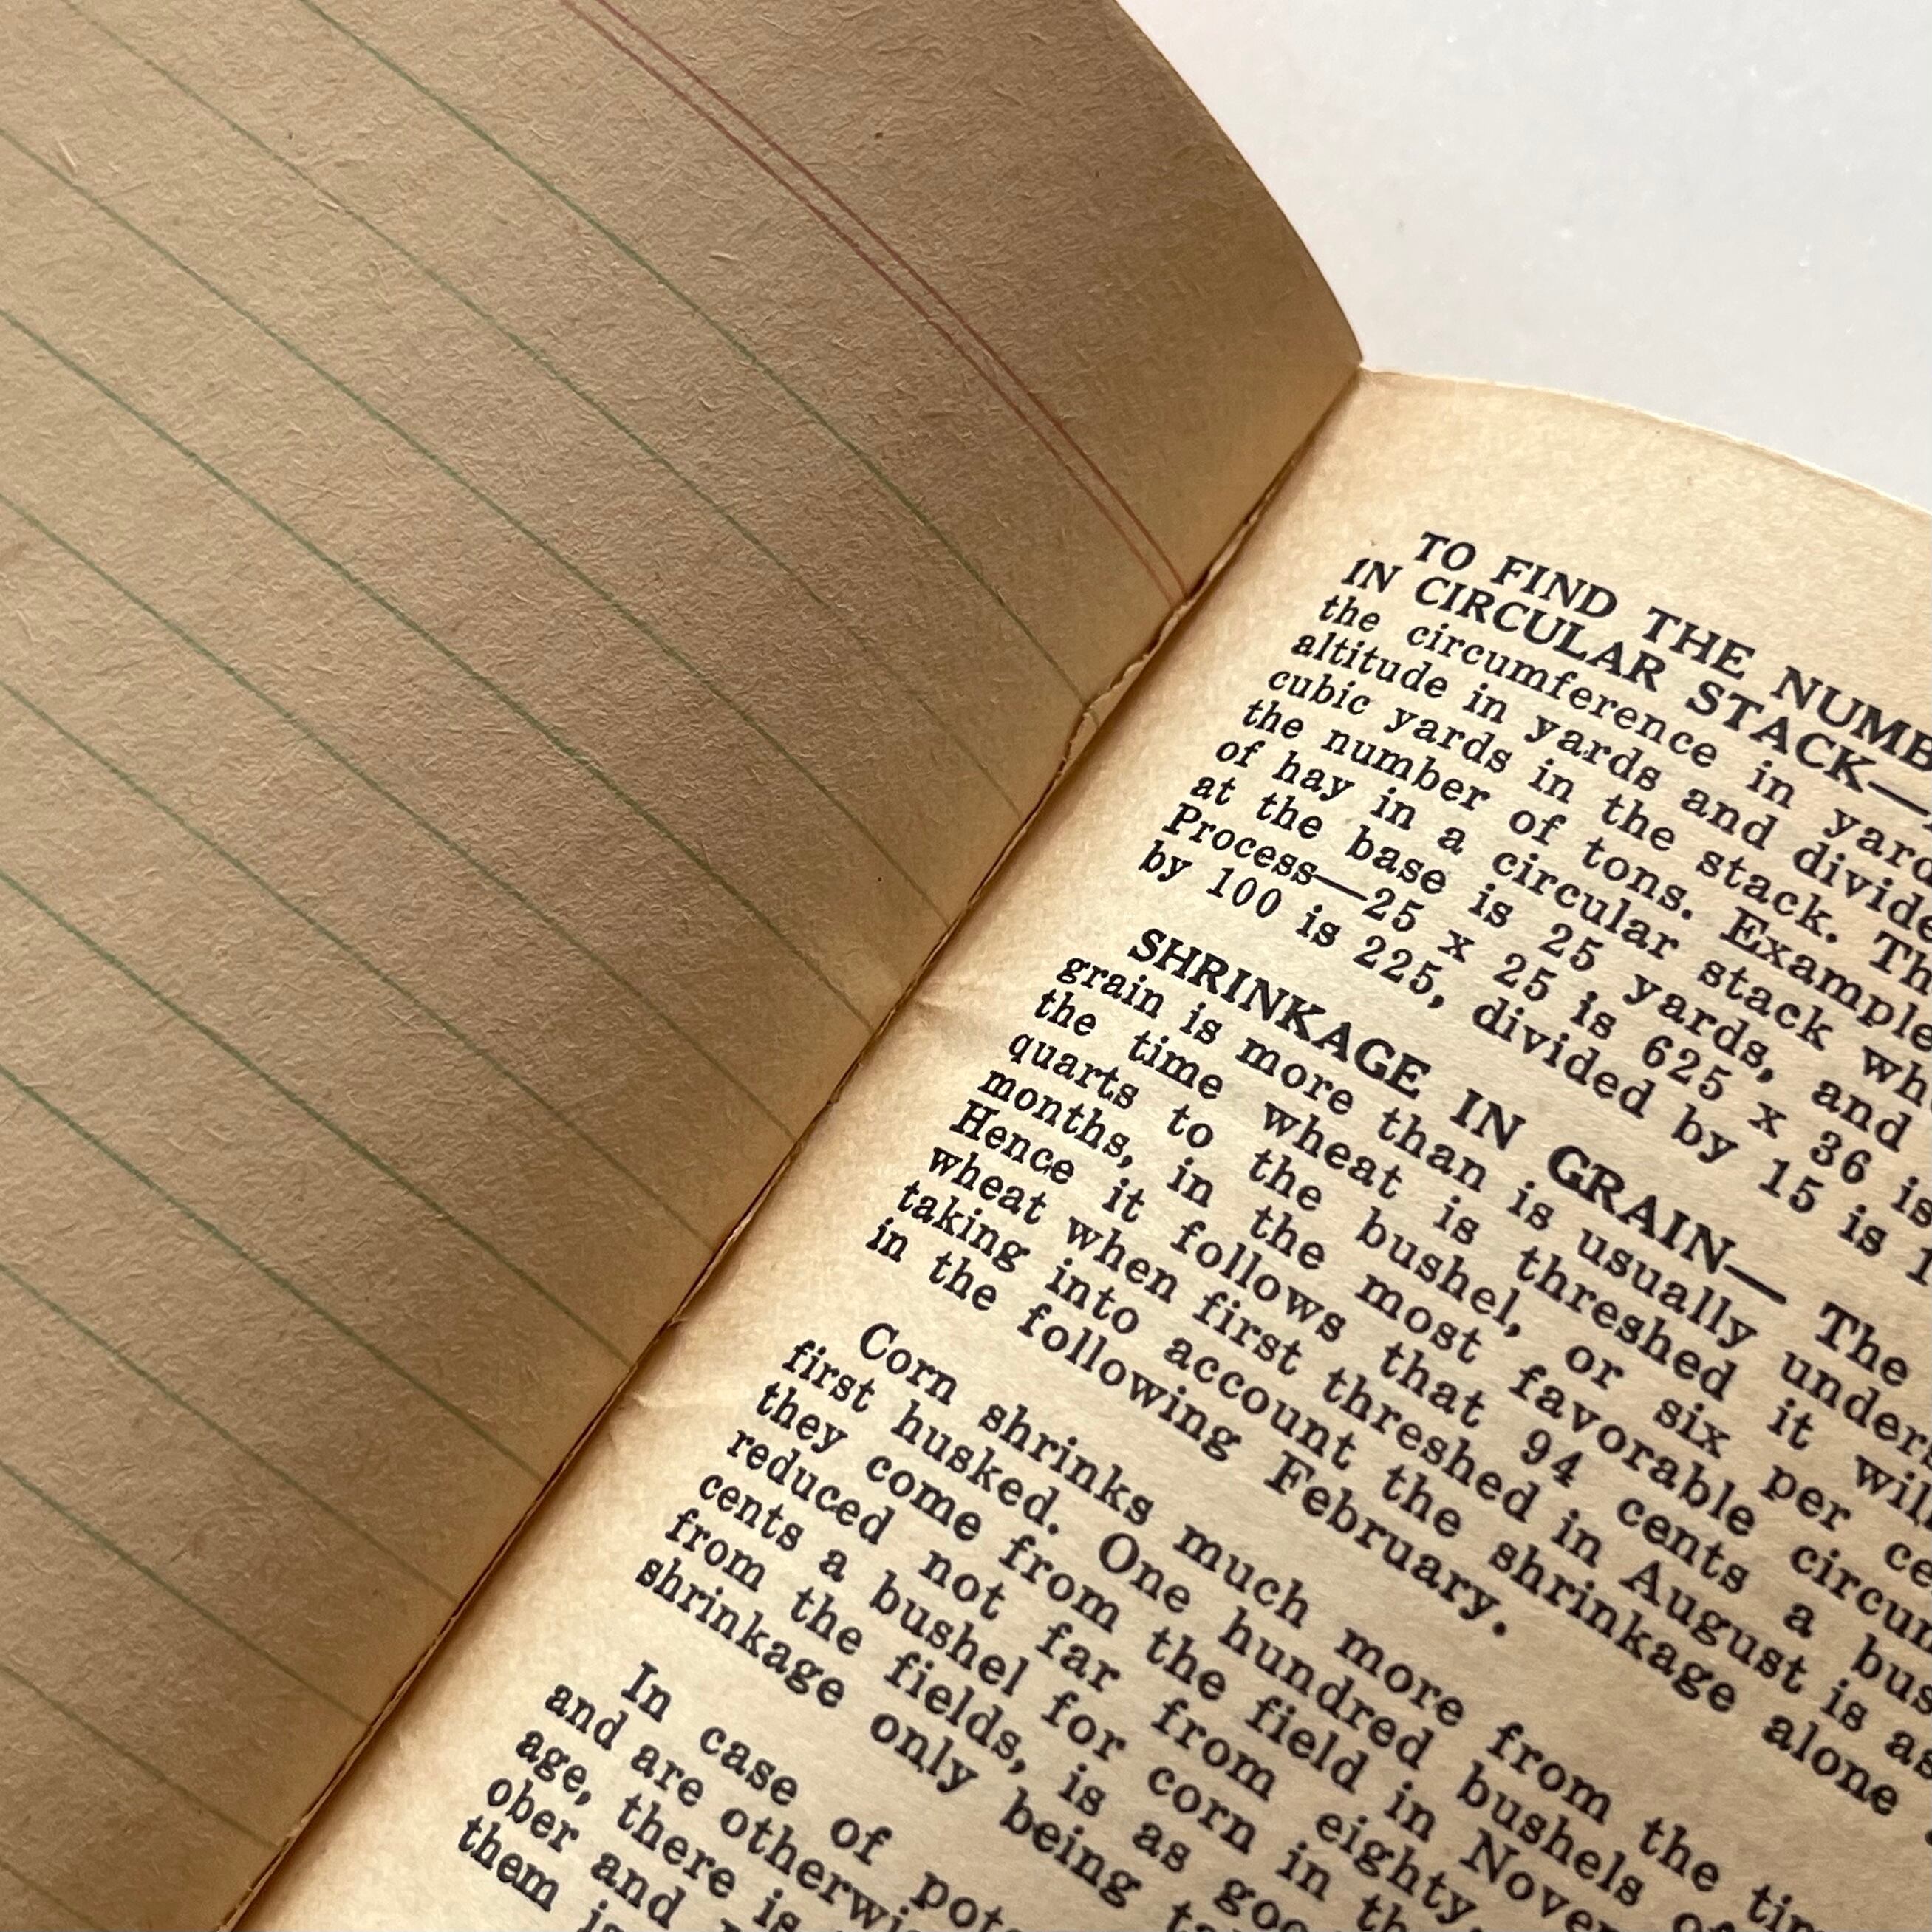 TO FIND THE NUMB
IN CIRCULAR STACK—
the circumference in yard
altitude in yards and divide
cubic yards in the stack. Th
the number of tons. Example
of hay in a circular stack wh
at the base is 25 yards, and
Process—25 x 25 is 625 x 36 is
by 100 is 225, divided by 15 is 1
SHRINKAGE IN GRAIN— The
grain is more than is usually unders
the time wheat is threshed it will
quarts to the bushel, or six per ce
months, in the most favorable circum
Hence it follows that 94 cents a bus
wheat when first threshed in August is as
taking into account the shrinkage alone
in the following February.
Corn shrinks much more from the tim
first husked. One hundred bushels of
they come from the field in Novem
reduced not far from eighty.
cents a bushel for corn in th
from the fields, is as goo
shrinkage only being ta
In case of pota
and are otherwi
age, there is
ober and
them is